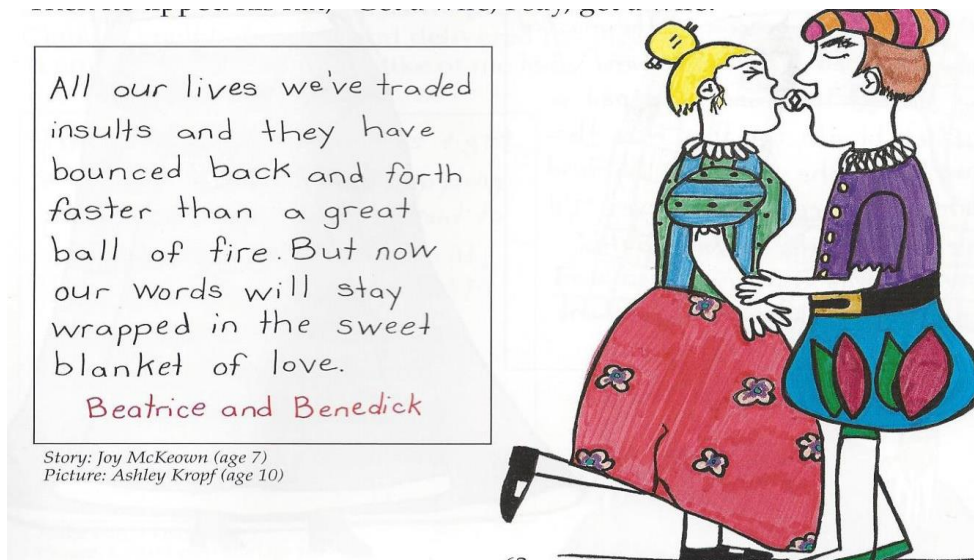 All our lives we've traded
insults and they have
bounced back and forth
faster than a great
ball of fire. But now
our words will stay
wrapped in the sweet
blanket of love.
Beatrice and Benedick
Story: Joy McKeown (age 7)
Picture: Ashley Kropf (age 10)